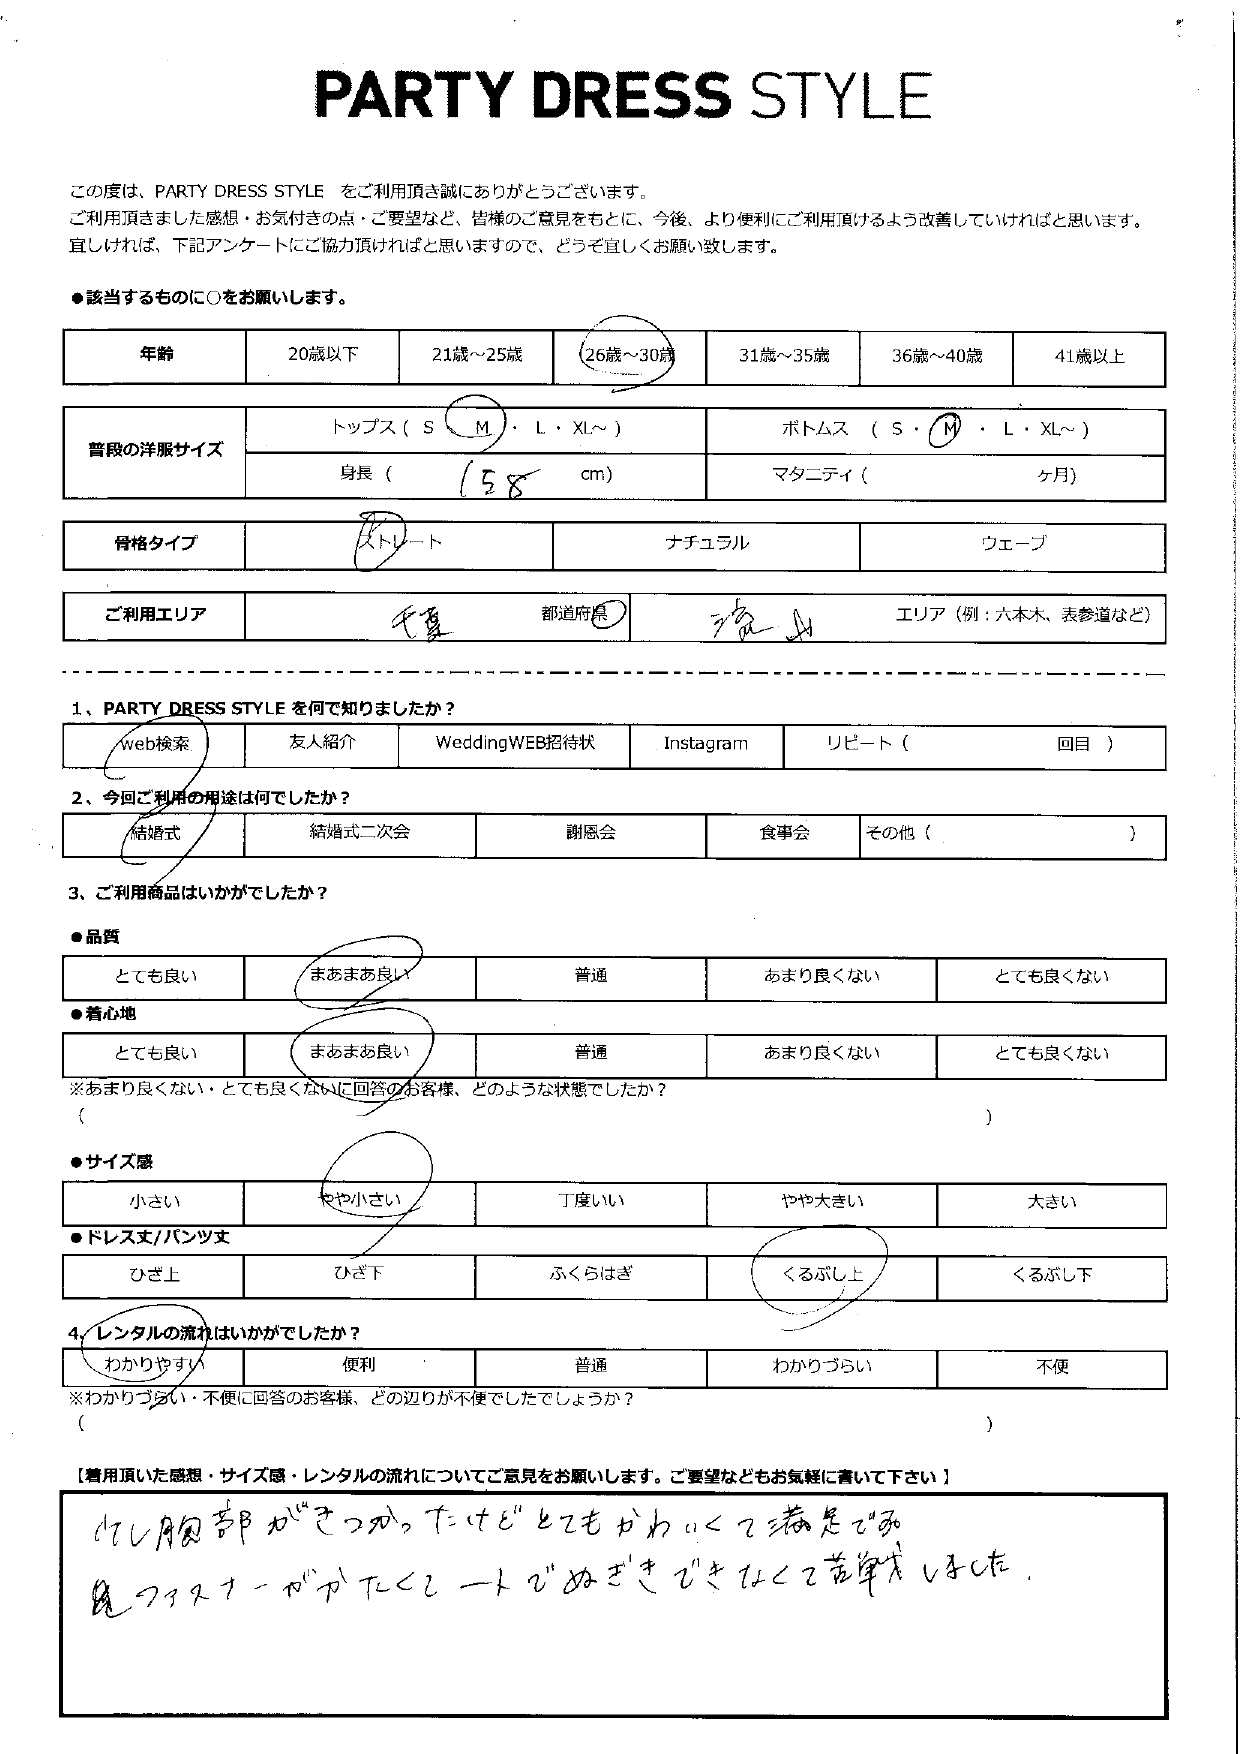 PARTY DRESS STYLE
この度は、PARTY DRESS STYLE をご利用頂き誠にありがとうございます。
ご利用頂きました感想・お気付きの点・ご要望など、皆様のご意見をもとに、今後、より便利にご利用頂けるよう改善していければと思います。
宜しければ、下記アンケートにご協力頂ければと思いますので、どうぞ宜しくお願い致します。
●該当するものに○をお願いします。
年齢 20歳以下 21歳～25歳 26歳～30歳 31歳～35歳 36歳～40歳 41歳以上
普段の洋服サイズ
トップス ( S M ・ L ・ XL～ ) ボトムス ( S ・ M ・ L ・ XL～ )
身長 ( 158 cm) マタニティ ( ヶ月)
骨格タイプ ストレート ナチュラル ウェーブ
ご利用エリア 千葉 都道府県 流山 エリア（例：六本木、表参道など）
1、PARTY DRESS STYLE を何で知りましたか？
web検索 友人紹介 WeddingWEB招待状 Instagram リピート ( 回目 )
2、今回ご利用の用途は何でしたか？
結婚式 結婚式二次会 謝恩会 食事会 その他 ( )
3、ご利用商品はいかがでしたか？
●品質
とても良い まあまあ良い 普通 あまり良くない とても良くない
●着心地
とても良い まあまあ良い 普通 あまり良くない とても良くない
※あまり良くない・とても良くないに回答のお客様、どのような状態でしたか？
( )
●サイズ感
小さい やや小さい 丁度いい やや大きい 大きい
●ドレス丈/パンツ丈
ひざ上 ひざ下 ふくらはぎ くるぶし上 くるぶし下
4、レンタルの流れはいかがでしたか？
わかりやすい 便利 普通 わかりづらい 不便
※わかりづらい・不便に回答のお客様、どの辺りが不便でしたでしょうか？
( )
【着用頂いた感想・サイズ感・レンタルの流れについてご意見をお願いします。ご要望などもお気軽に書いて下さい】
少し胸部がきつかったけどとてもかわいくて満足です
ファスナーがかたくて一人でぬぎきできなくて苦戦しました.